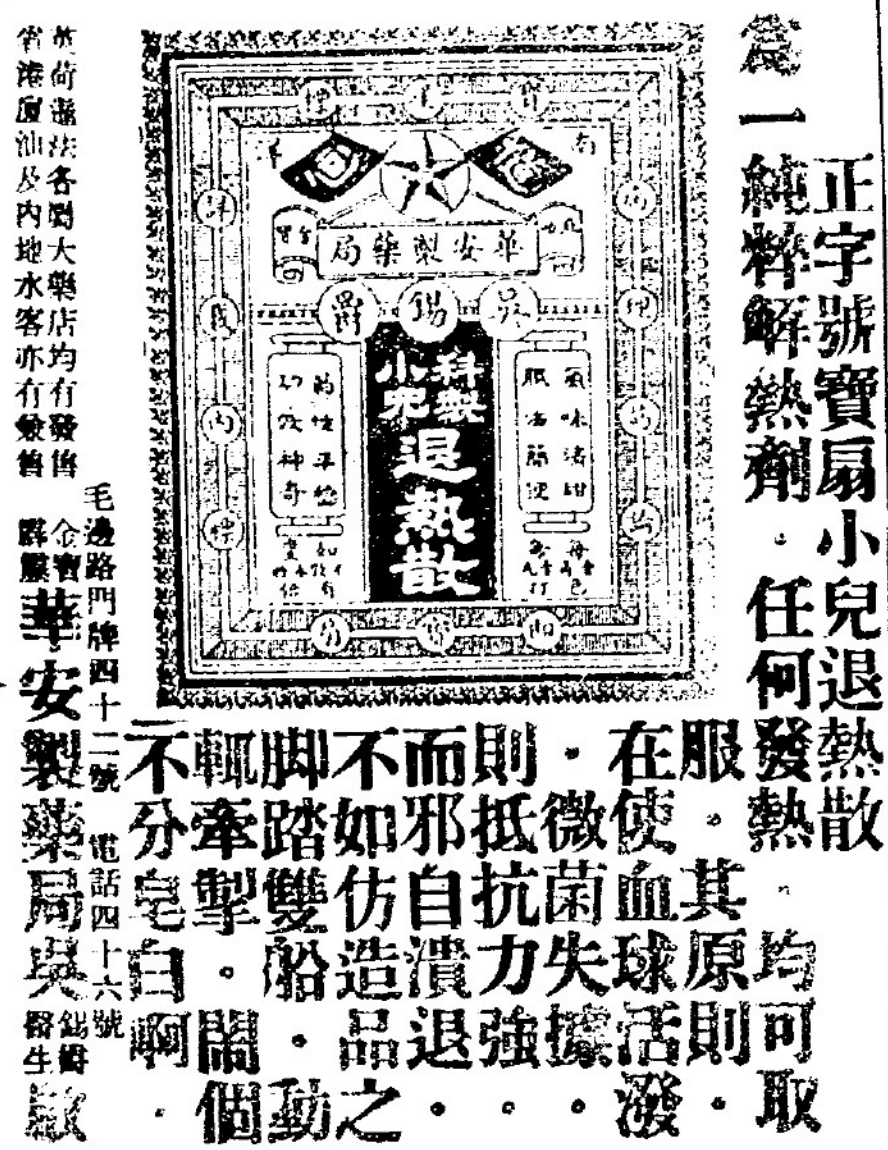 正字號寶扇小兒退熱散
為一純粹解熱劑。任何發熱。均可取
服。其原則。
在使血球活潑
。微菌失據。
則抵抗力強。
而邪自潰退。
不如仿造品之
脚踏雙船。動
輒牽掣。鬧個
不分皂白啊。
南洋
華安製藥局
吳錫爵
小兒
退熱散
氣味清甜
服法簡便
藥性平穩
功效神奇
毛邊路門牌四十二號 電話四十六號
金寶
霹靂
華安製藥局吳錫爵醫生啟
英荷暹法各屬大藥店均有發售
省港厦汕及內地水客亦有售